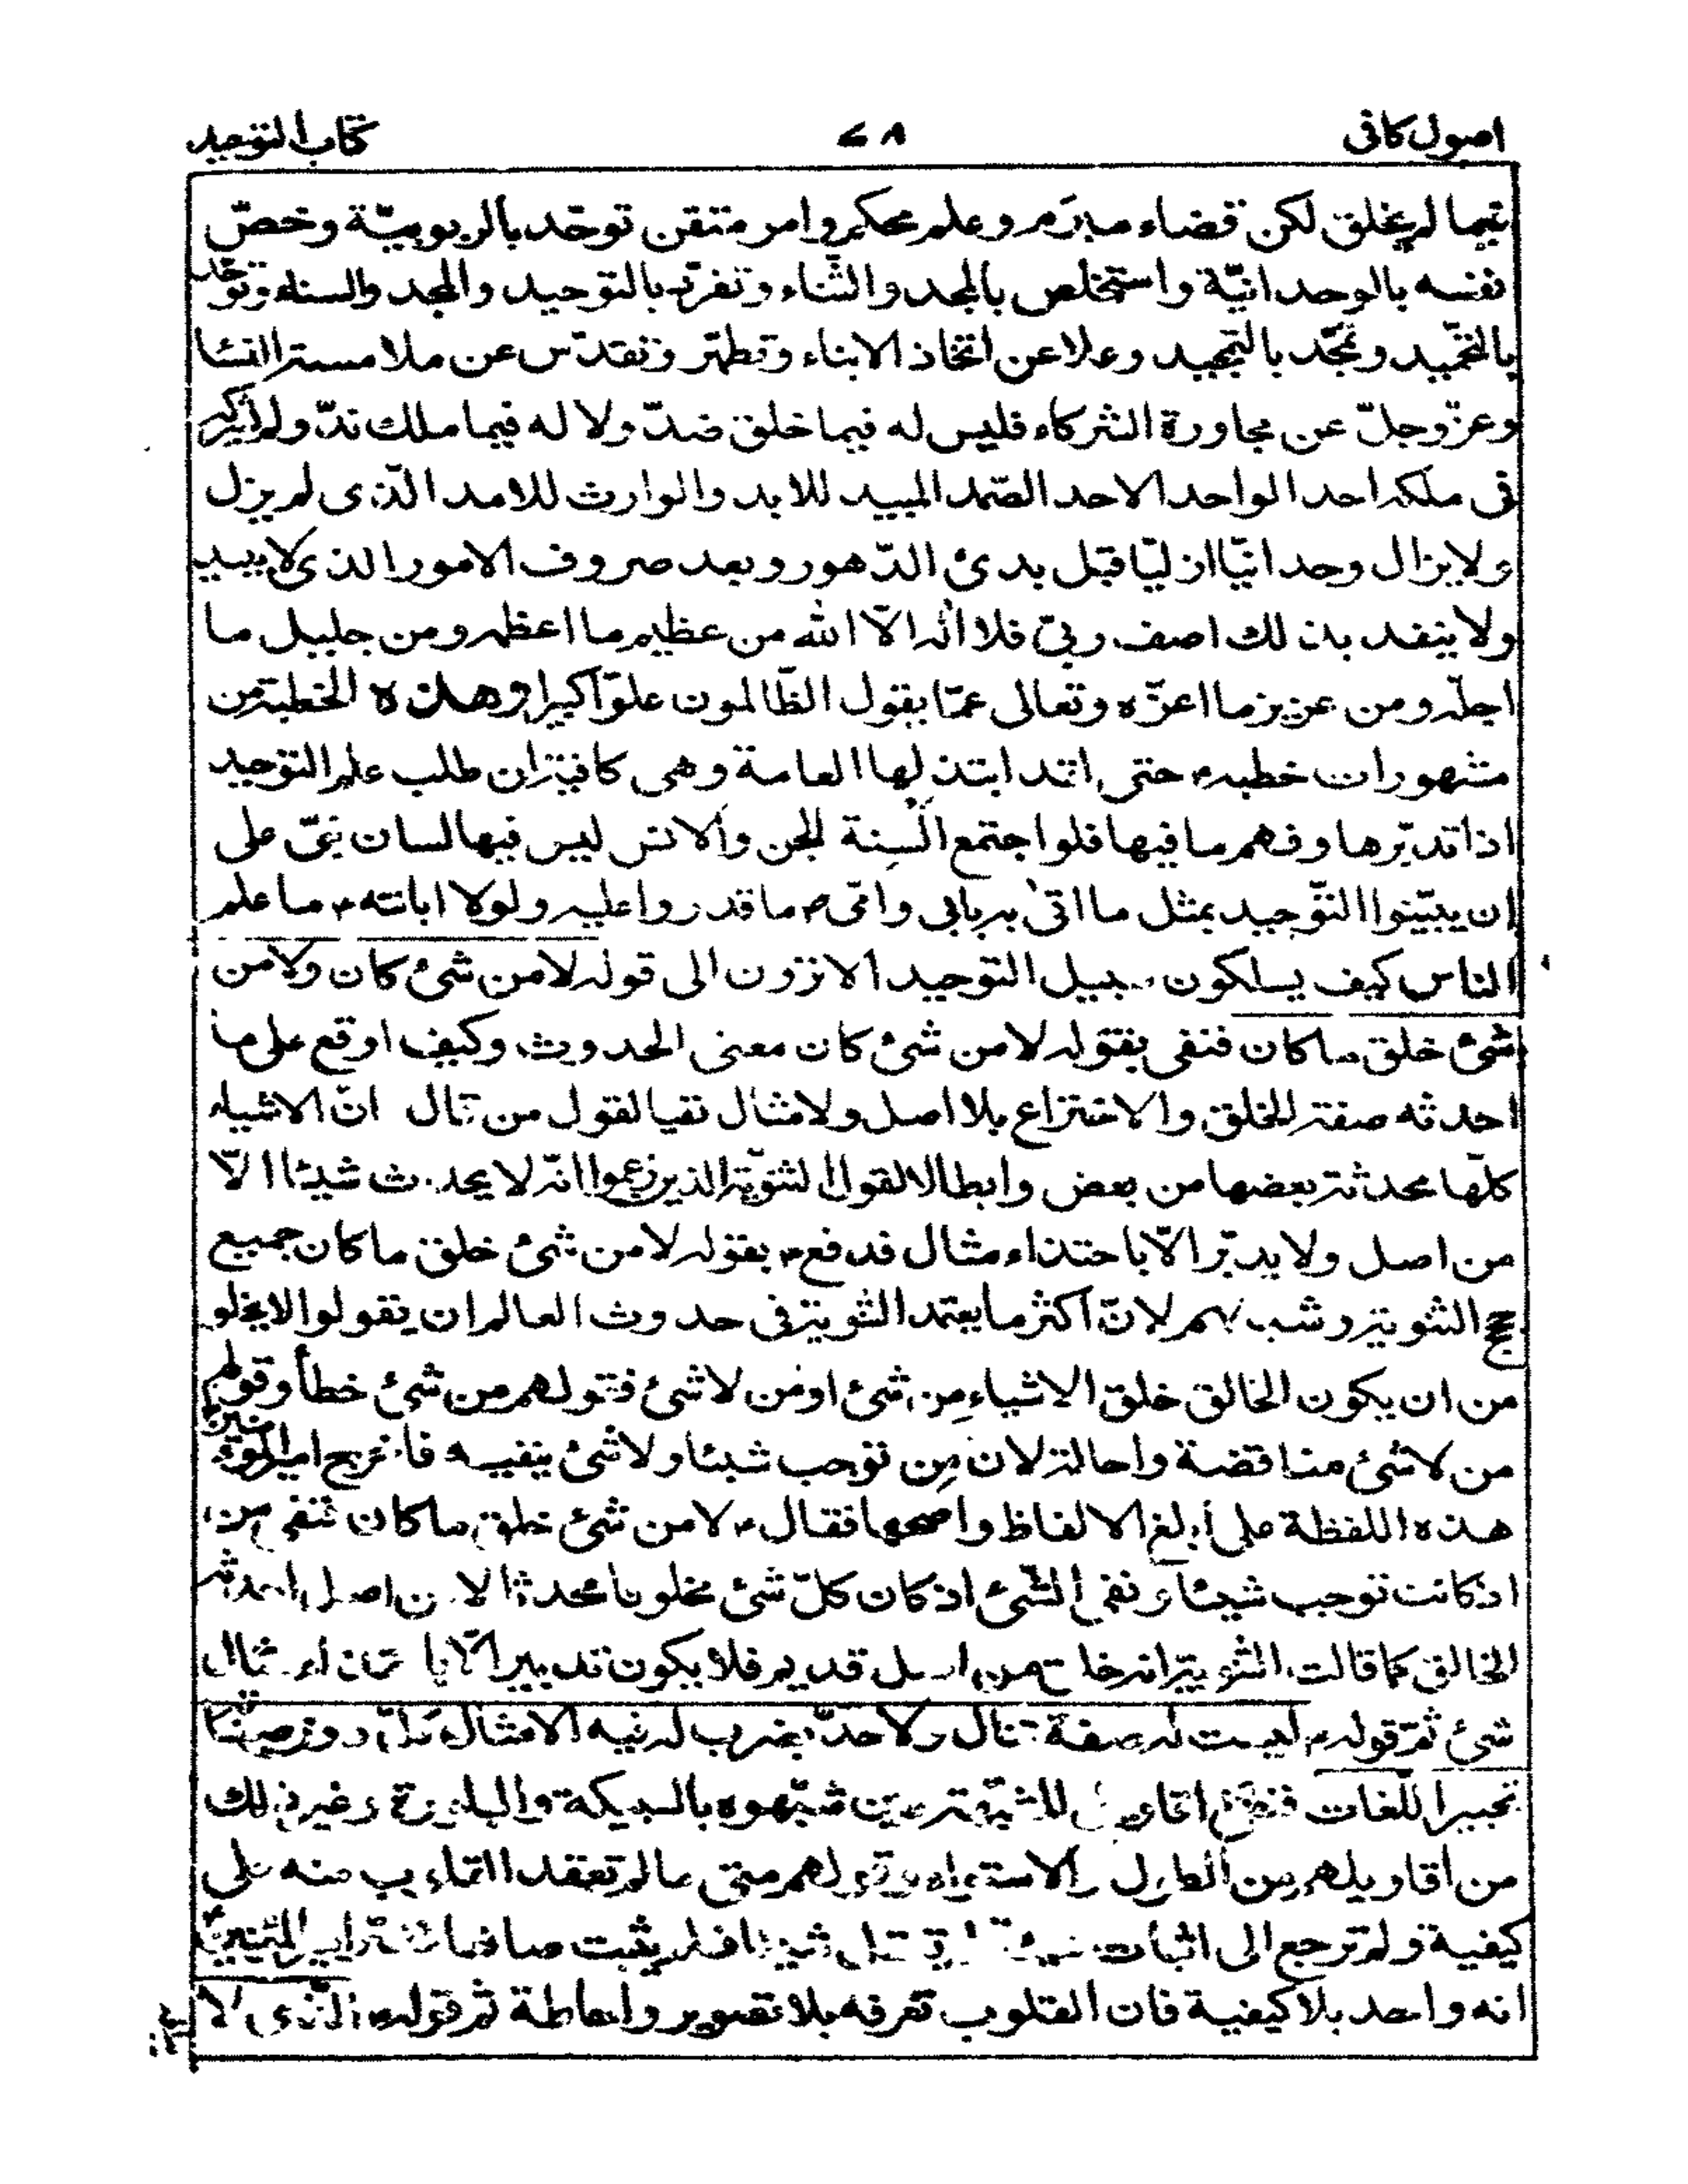 اصول كافى ٧٨ كتاب التوحيد
فيما لم يخلق لكن قضاء مبرَم وعلم محكم وامر متقن توحّد بالربوبيّة وخصّ
نفسه بالوحدانيّة واستخلص بالمجد والثّناء وتفرّد بالتوحيد والمجد والسناء وتوحّد
بالتّحميد وتمجّد بالتمجيد وعلا عن اتّخاذ الابناء وتطهّر وتقدّس عن ملامسة النسا
وعزّ وجلّ عن مجاورة الشركاء فليس له فيما خلق ضدّ ولا له فيما ملك ندّ ولم يشركه
فى ملكه احد الواحد الاحد الصّمد المبيد للابد والوارث للامد الّذى لم يزل
ولا يزال وحدانيّا ازليّا قبل بدئ الدّهور وبعد صروف الامور الذى لا يبيد
ولا ينفد بذلك اصف ربّى فلا اله الّا الله من عظيم ما اعظمه ومن جليل ما
اجلّه ومن عزيز ما اعزّه وتعالى عمّا يقول الظّالمون علوّا كبيرا وهذه الخطبة من
مشهورات خطبه حتى اتد ابتذلها العامة وهى كافية ان طلب علم التوحيد
اذا تدبّرها وفهم ما فيها فلو اجتمع السنة الجن والانس ليس فيها لسان نبىّ على
ان يبيّنوا التوحيد بمثل ما اتى به بابى وامّى ص ما قدروا عليه ولولا ابانته ما علم
الناس كيف يسلكون سبيل التوحيد الا ترون الى قوله لا من شئ كان ولا من
شئ خلق ما كان فنفى بقوله لا من شئ كان معنى الحدوث وكيف اوقع على ما
احدثه صفة الخلق والاختراع بلا اصل ولا مثال نفيا لقول من قال انّ الاشياء
كلّها محدثة بعضها من بعض وابطالا لقول الثنويّة الذين زعموا انّه لا يحدث شيئا الّا
من اصل ولا يدبّر الّا باحتذاء مثال فدفع بقوله لا من شئ خلق ما كان جميع
حجج الثنوية وشبههم لانّ اكثر ما يعتمد الثنوية فى حدوث العالم ان يقولوا لا يخلو
من ان يكون الخالق خلق الاشياء من شئ او من لا شئ فقولهم من شئ خطأ وقولهم
من لا شئ مناقضة واحالة لان من توجب شيئا ولا شئ ينفيه فاخرج امير المؤمنين
هذه اللفظة على ابلغ الالفاظ واصحها فقال لا من شئ خلق ما كان فنفى من
اذ كانت توجب شيئا ونفى الشّئ اذ كان كلّ شئ مخلوقا محدثا لا من اصل احدثه
الخالق كما قالت الثنوية انه خلق من اصل قديم فلا يكون تدبير الّا باحتذاء مثال
شئ ثمّ قوله ليست له صفة تنال ولا حدّ يضرب له فيه الامثال كلّ دون صفته
تحبير اللّغات فنفى اقاويل المشبّهة حين شبّهوه بالسبيكة والبلورة وغير ذلك
من اقاويلهم من الطول والاستواء وقولهم متى ما لم تعقد القلوب منه على
كيفية ولم ترجع الى اثبات هيئة لم تعقل شيئا فلم يثبت صانعا ففسّر امير المؤمنين
انه واحد بلا كيفية فان القلوب تعرفه بلا تصوير واحاطة ثم قوله الّذى لا